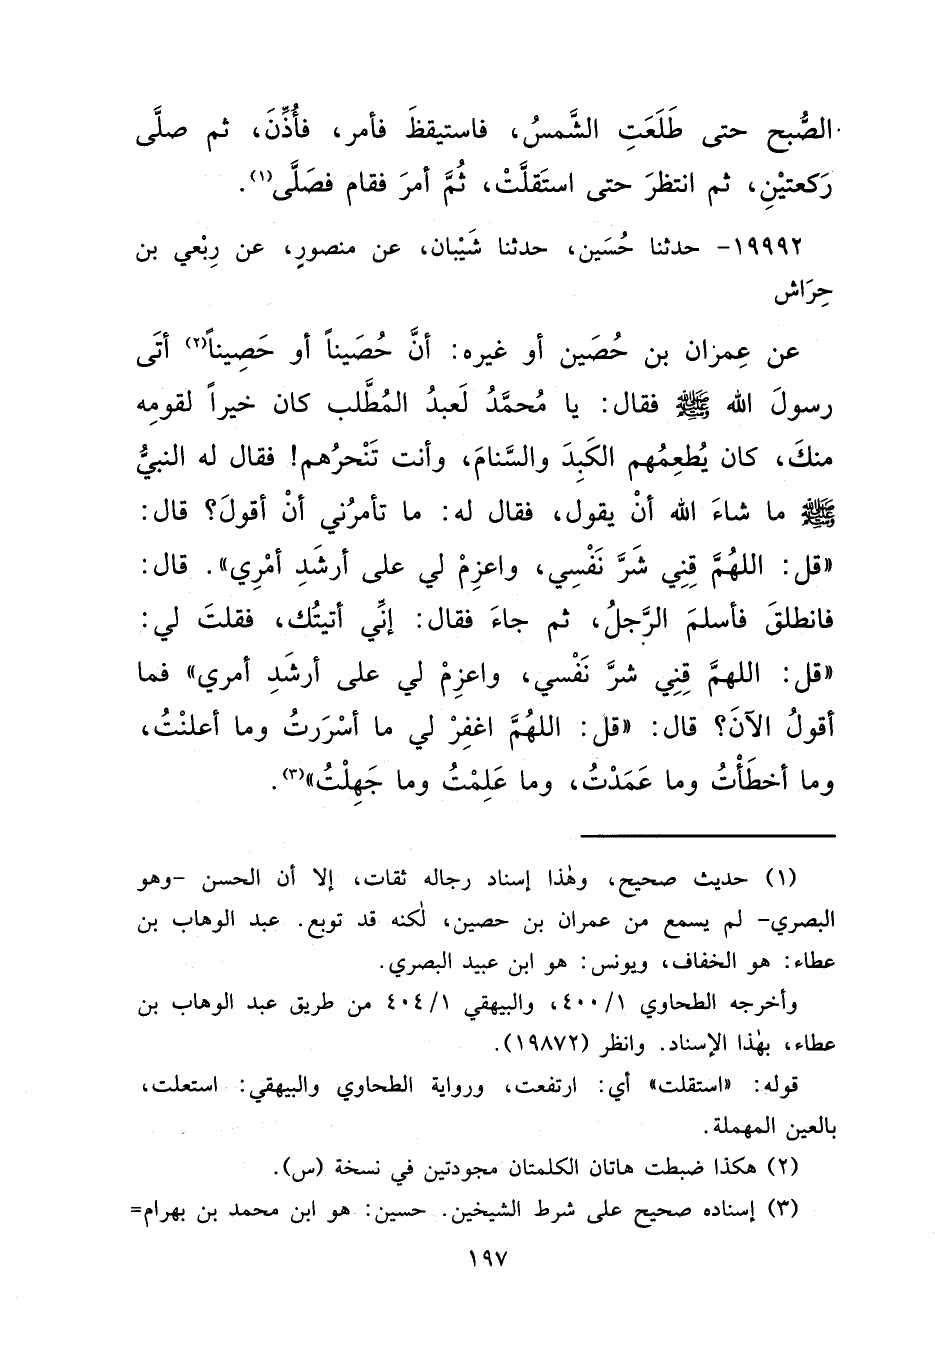 الصُّبح حتى طَلَعَتِ الشَّمسُ، فاستيقظَ فأمر، فأُذِّنَ، ثم صلَّى
رَكعتيْنِ، ثم انتظرَ حتى استَقلَّتْ، ثُمَّ أمرَ فقام فصَلَّى(١).
١٩٩٩٢- حدثنا حُسَين، حدثنا شَيْبان، عن منصورٍ، عن رِبْعي بن
حِرَاش
عن عِمزان بن حُصَين أو غيره: أنَّ حُصَيناً أو حَصِيناً(٢) أتَى
رسولَ الله ﷺ فقال: يا مُحمَّدُ لَعبدُ المُطَّلب كان خيراً لقومِه
منكَ، كان يُطعِمُهم الكَبِدَ والسَّنامَ، وأنت تَنْحرُهم! فقال له النبيُّ
ﷺ ما شاءَ الله أنْ يقول، فقال له: ما تأمرُني أنْ أقولَ؟ قال:
«قل: اللهُمَّ قِنِي شَرَّ نَفْسِي، واعزِمْ لي على أرشَدِ أمْرِي». قال:
فانطلقَ فأسلمَ الرَّجلُ، ثم جاءَ فقال: إنِّي أتيتُك، فقلتَ لي:
«قل: اللهمَّ قِنِي شرَّ نَفْسي، واعزِمْ لي على أرشَدِ أمري» فما
أقولُ الآنَ؟ قال: «قل: اللهُمَّ اغفِرْ لي ما أسْرَرتُ وما أعلنْتُ،
وما أخطَأْتُ وما عَمَدْتُ، وما عَلِمْتُ وما جَهِلْتُ»(٣).
(١) حديث صحيح، وهٰذا إسناد رجاله ثقات، إلا أن الحسن -وهو
البصري- لم يسمع من عمران بن حصين، لٰكنه قد توبع. عبد الوهاب بن
عطاء: هو الخفاف، ويونس: هو ابن عبيد البصري.
وأخرجه الطحاوي ٤٠٠/١، والبيهقي ٤٠٤/١ من طريق عبد الوهاب بن
عطاء، بهٰذا الإسناد. وانظر (١٩٨٧٢).
قوله: «استقلت» أي: ارتفعت، ورواية الطحاوي والبيهقي: استعلت،
بالعين المهملة.
(٢) هكذا ضبطت هاتان الكلمتان مجودتين في نسخة (س).
(٣) إسناده صحيح على شرط الشيخين. حسين: هو ابن محمد بن بهرام=
١٩٧